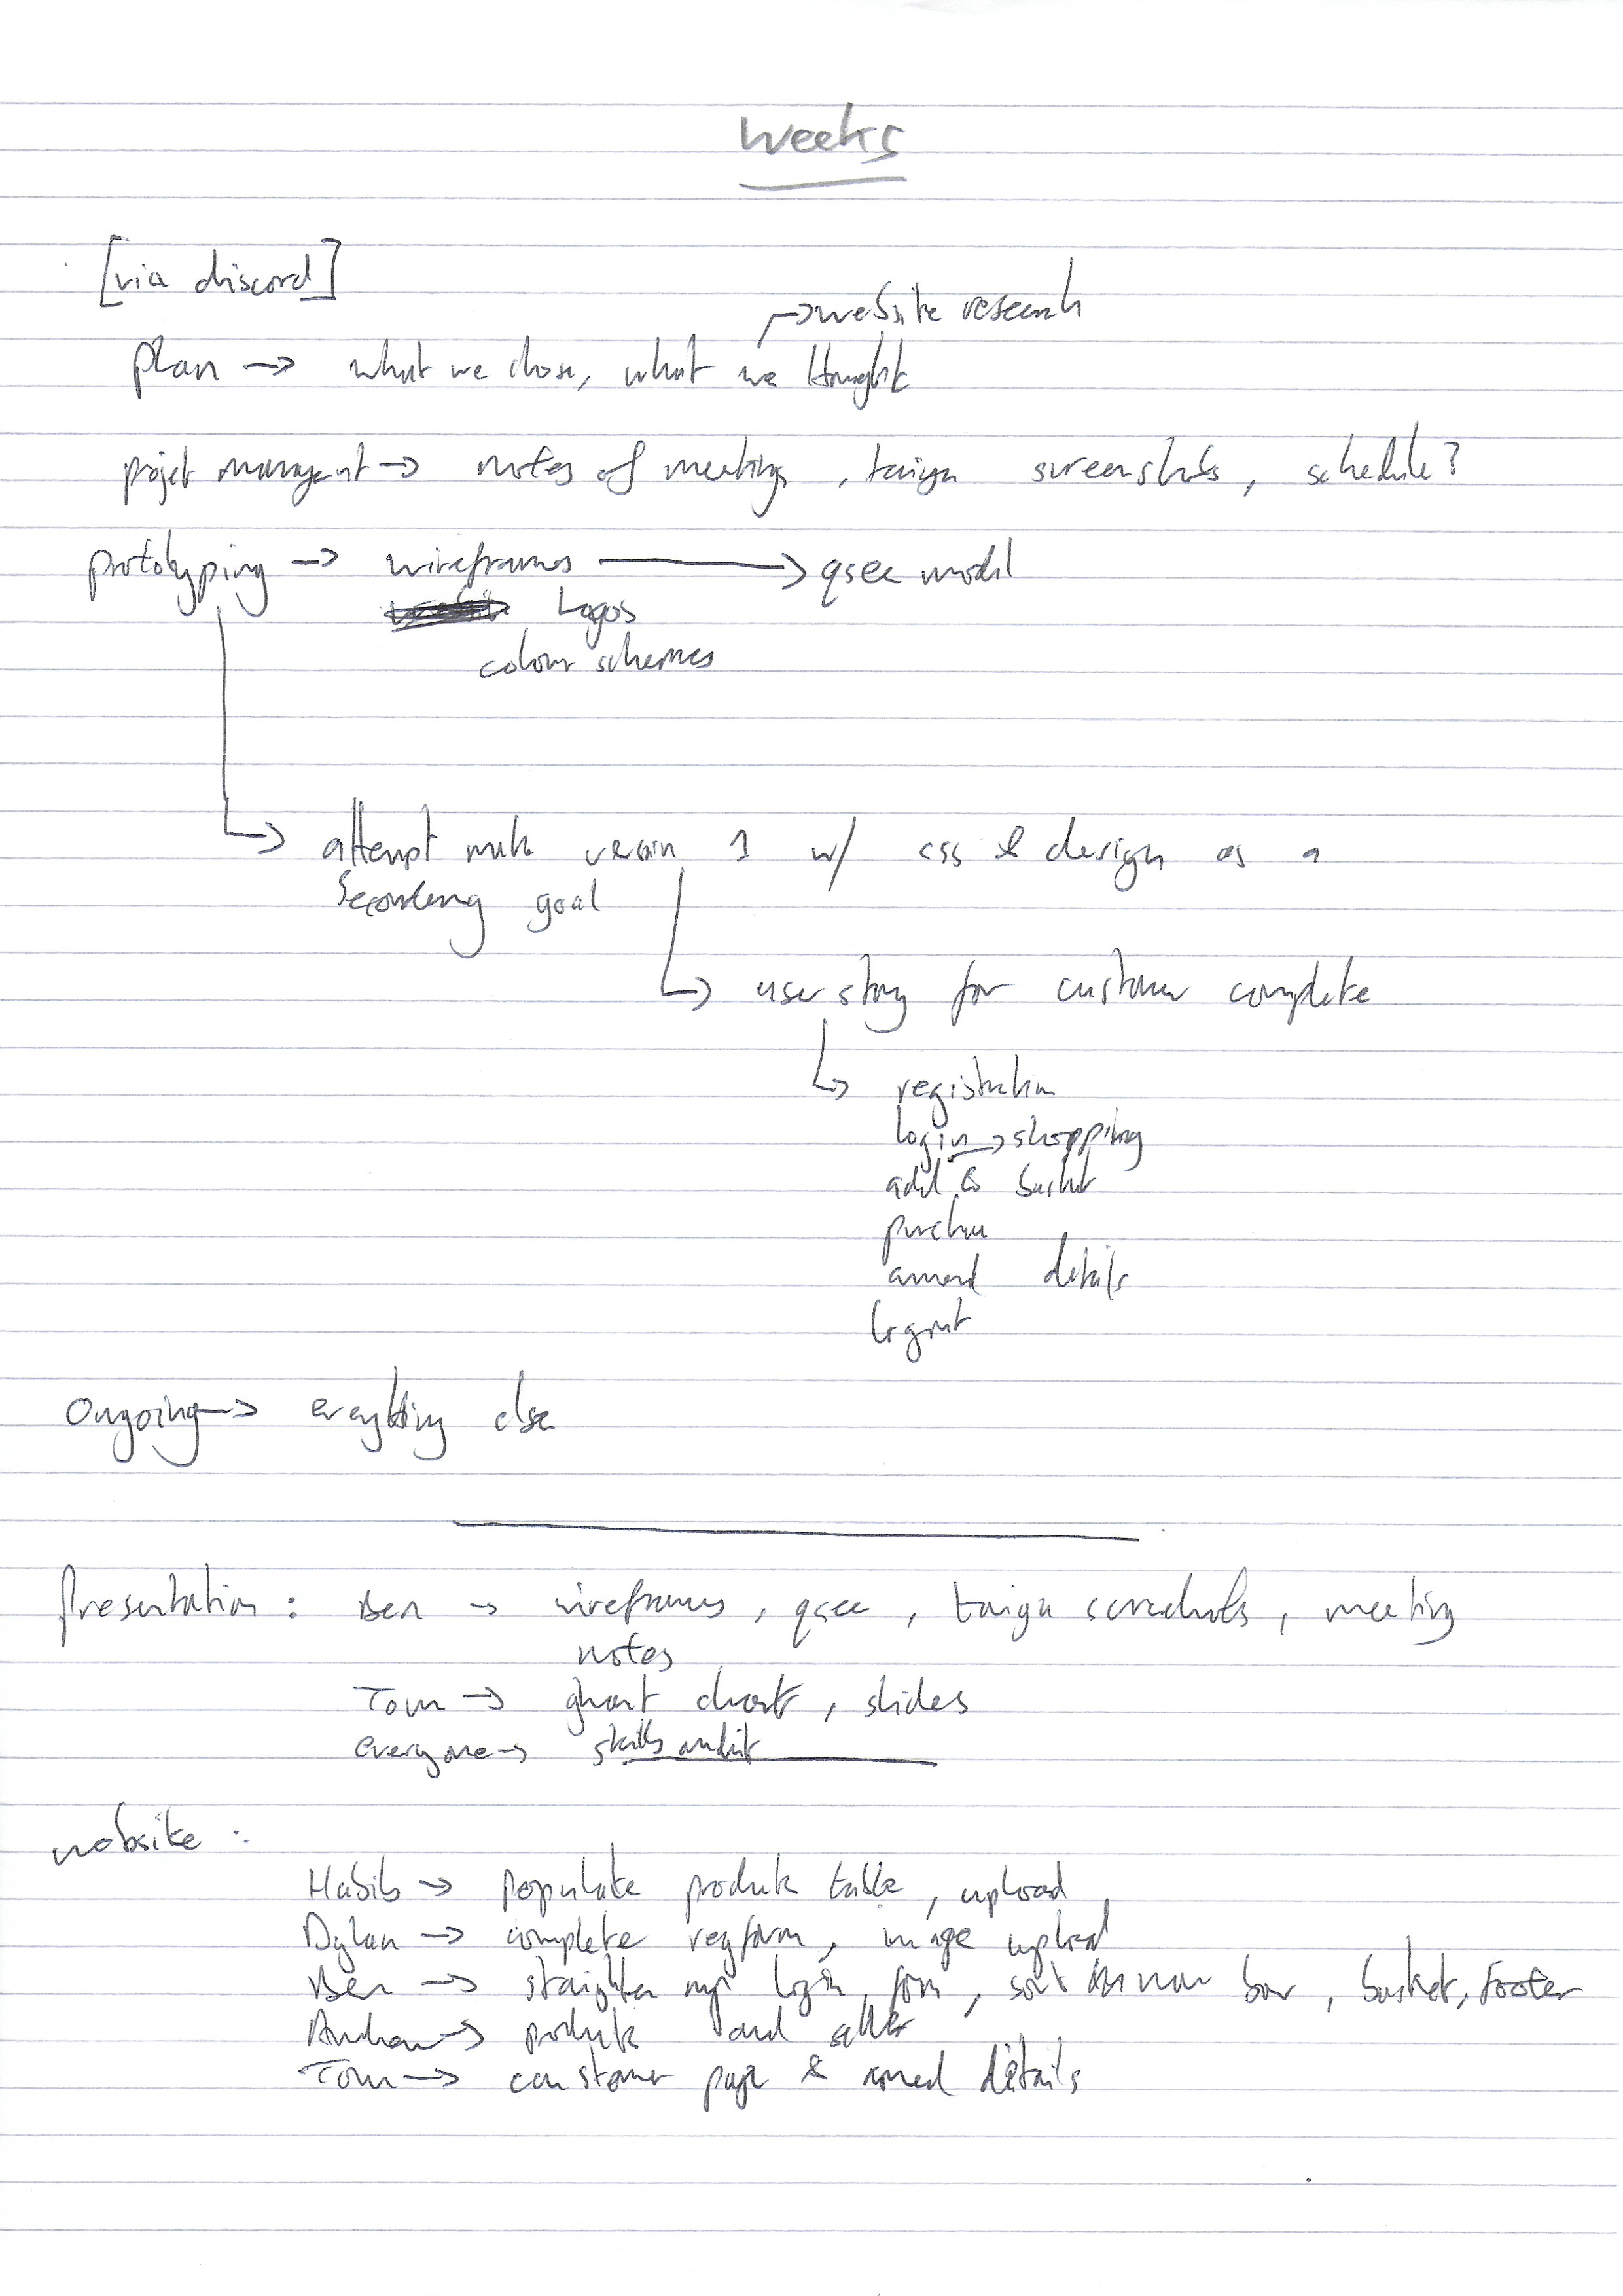 weeks
[via discord]
→ website research
plan → what we chose, what we thought
projet managent → notes of meetings, taiga screenshots, schedule?
prototyping → wireframes → qsee model
Logos
colour schemes
→ attempt make version 1 w/ css & design as a
Secondary goal
→ user story for customer complete
→ registration
login → shopping
add to basket
purchase
amend details
logout
Ongoing → everything else
Presentation: Ben → wireframes, qsee, taiga screenshots, meeting
notes
Tom → ghant chart, slides
everyone → skills audit
website:
Habib → populate produk table, upload
Dylan → complete regform, image upload
Ben → straighten up login form, sort nav bar, basket, footer
→ produk and seller
Tom → customer page & amend details